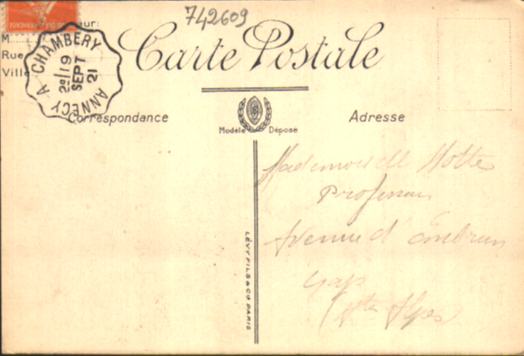 742609
Carte Postale
M
Rue
Ville
ANNECY A CHAMBERY
2° 19
SEPT
21
Correspondance
Modèle Déposé
Adresse
LEVY FILS & CO PARIS
Mademoiselle Motte
Professeur
Avenue d'Embrun
Gap
Htes Alpes